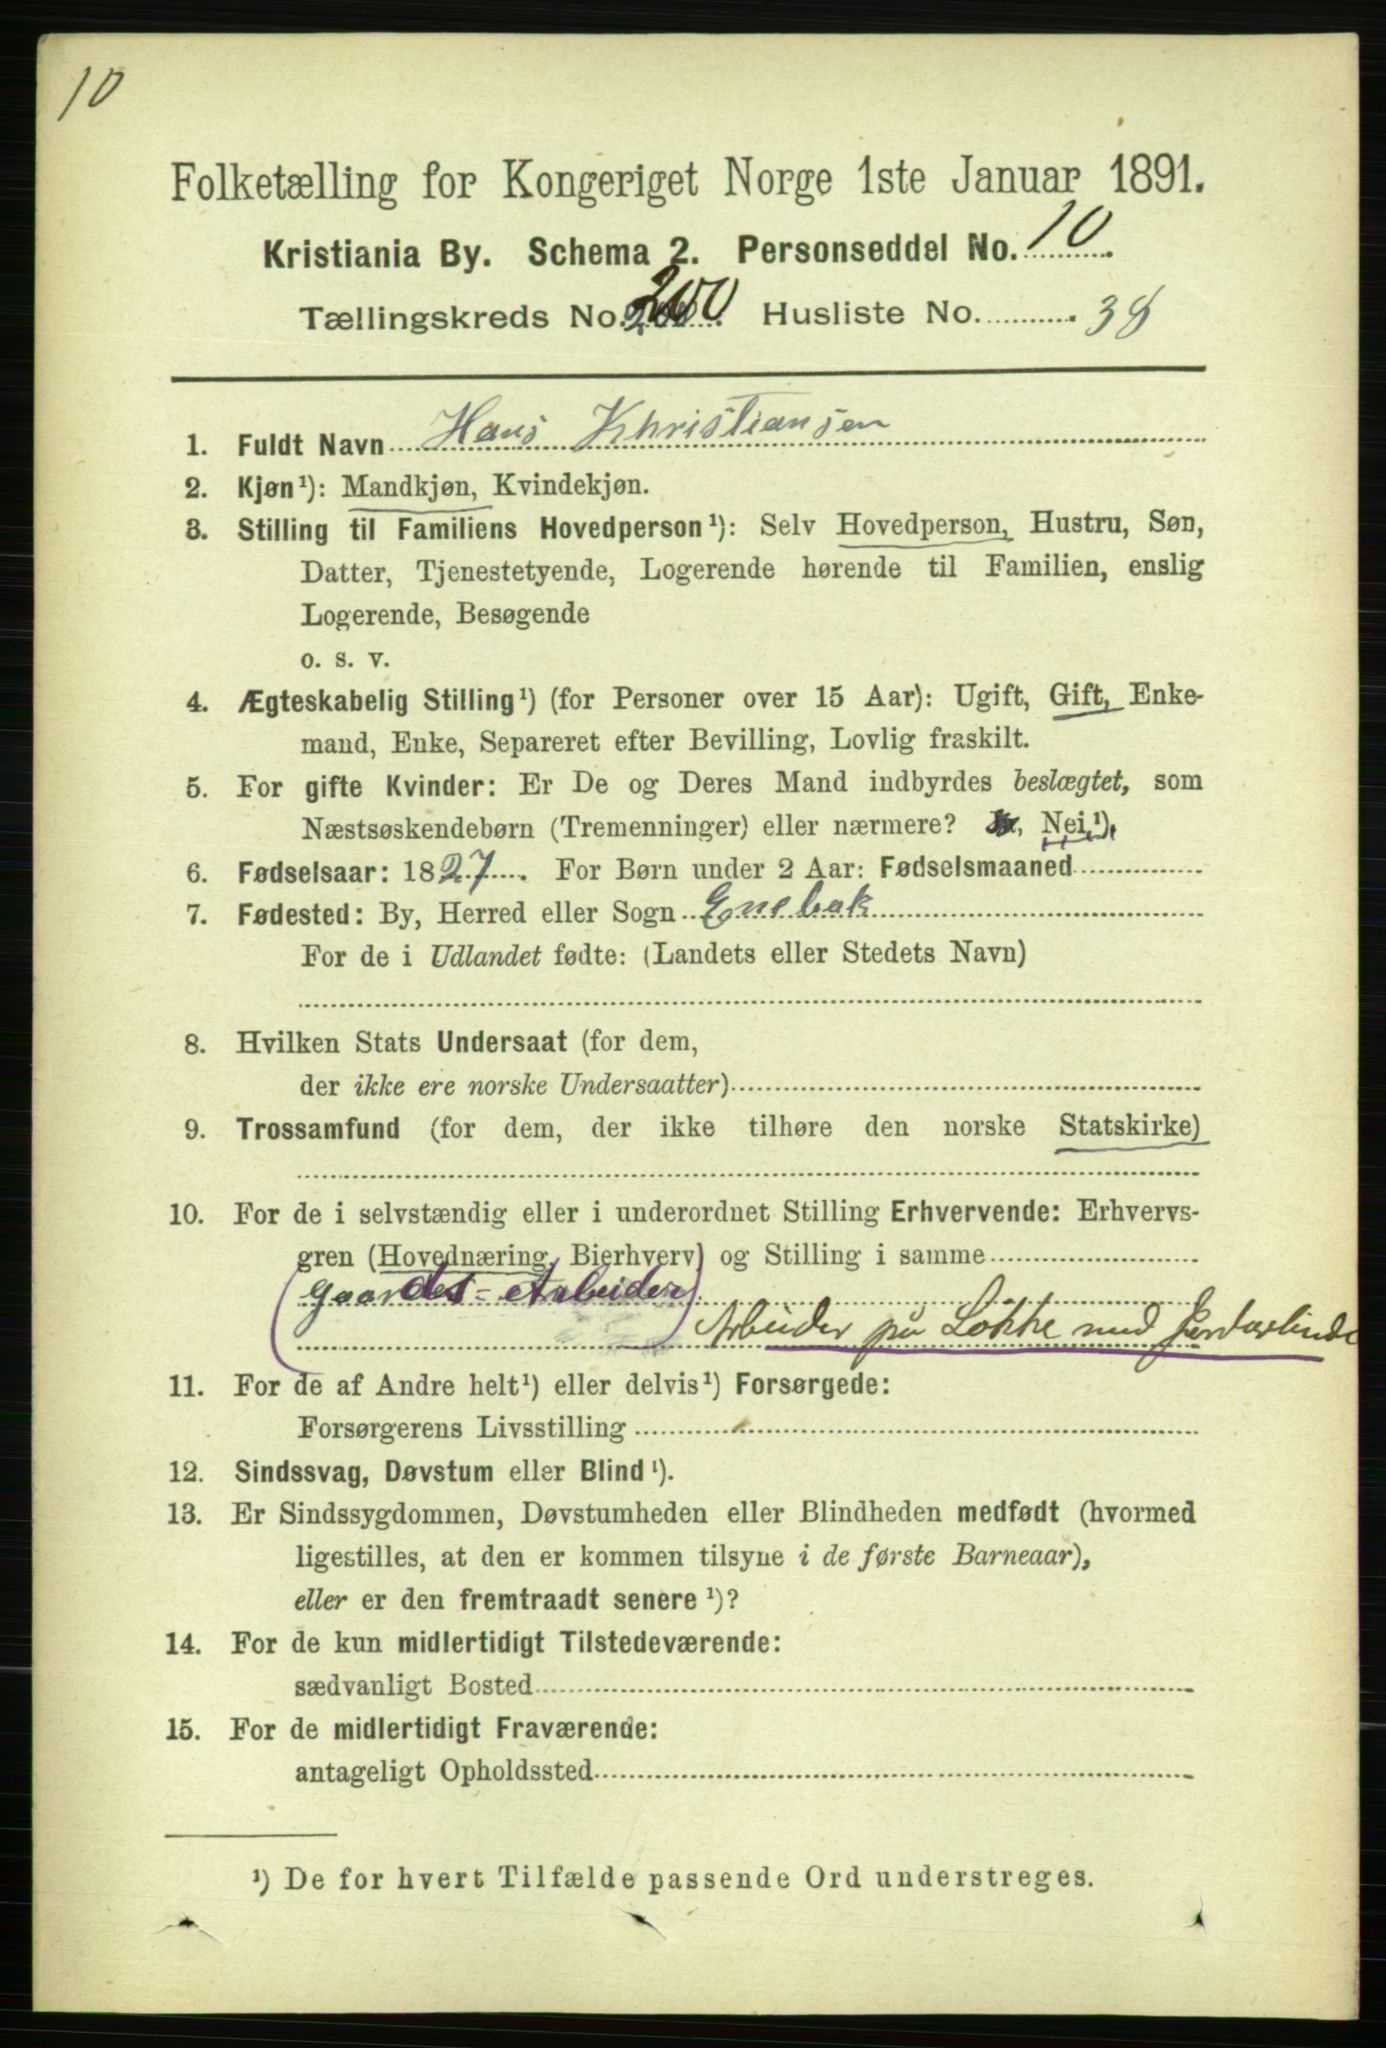 10
Folketælling for Kongeriget Norge 1ste Januar 1891.
Kristiania By. Schema 2. Personseddel No. 10
Tællingskreds No. 200. Husliste No. 38
1. Fuldt Navn Hans Khristiansen
2. Kjøn¹): Mandkjøn, Kvindekjøn.
3. Stilling til Familiens Hovedperson¹): Selv Hovedperson, Hustru, Søn,
Datter, Tjenestetyende, Logerende hørende til Familien, enslig
Logerende, Besøgende
o. s. v.
4. Ægteskabelig Stilling¹) (for Personer over 15 Aar): Ugift, Gift, Enke-
mand, Enke, Separeret efter Bevilling, Lovlig fraskilt.
5. For gifte Kvinder: Er De og Deres Mand indbyrdes beslægtet, som
Næstsøskendebørn (Tremenninger) eller nærmere? Ja, Nei¹),
6. Fødselsaar: 1827. For Børn under 2 Aar: Fødselsmaaned
7. Fødested: By, Herred eller Sogn Enebak
For de i Udlandet fødte: (Landets eller Stedets Navn)
8. Hvilken Stats Undersaat (for dem,
der ikke ere norske Undersaatter)
9. Trossamfund (for dem, der ikke tilhøre den norske Statskirke)
10. For de i selvstændig eller i underordnet Stilling Erhvervende: Erhvervs-
gren (Hovednæring, Bierhverv) og Stilling i samme
(Gaardes-Arbeider)
Arbeider på Løkke med
11. For de af Andre helt¹) eller delvis¹) Forsørgede:
Forsørgerens Livsstilling
12. Sindssvag, Døvstum eller Blind¹).
13. Er Sindssygdommen, Døvstumheden eller Blindheden medfødt (hvormed
ligestilles, at den er kommen tilsyne i de første Barneaar),
eller er den fremtraadt senere¹)?
14. For de kun midlertidigt Tilstedeværende:
sædvanligt Bosted
15. For de midlertidigt Fraværende:
antageligt Opholdssted
¹) De for hvert Tilfælde passende Ord understreges.